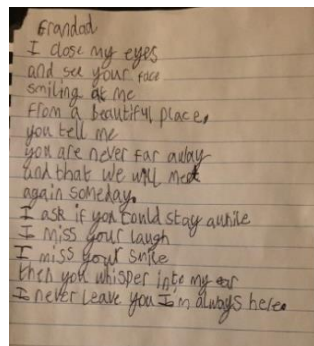 Grandad
I close my eyes
and see your face
smiling at me
from a beautiful place,
you tell me
you are never far away
and that we will meet
again someday.
I ask if you could stay awhile
I miss your laugh
I miss your smile
then you whisper into my ear
I never leave you I'm always here.